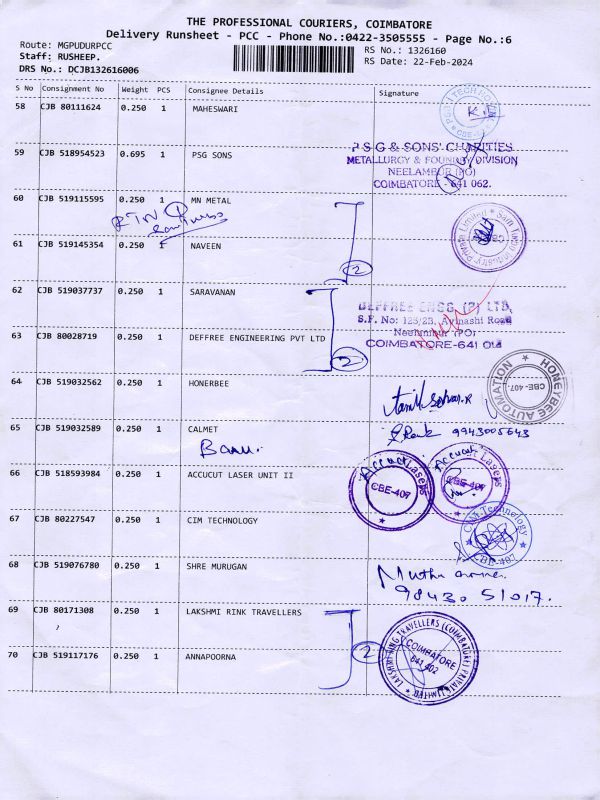 THE PROFESSIONAL COURIERS, COIMBATORE
Delivery Runsheet - PCC - Phone No.:0422-3505555 - Page No.:6
Route: MGPUDURPCC RS No.: 1326160
Staff: RUSHEEP. RS Date: 22-Feb-2024
DRS No.: DCJB132616006
S No Consignment No Weight PCS Consignee Details Signature
58 CJB 80111624 0.250 1 MAHESWARI
59 CJB 518954523 0.695 1 PSG SONS
P S G & SONS' CHARITIES
METALLURGY & FOUNDRY DIVISION
NEELAMBUR (PO)
COIMBATORE - 641 062.
60 CJB 519115595 0.250 1 MN METAL
RTN
61 CJB 519145354 0.250 1 NAVEEN
2
62 CJB 519037737 0.250 1 SARAVANAN
DEFFREE ENGG. (P) LTD,
S.F. No: 125/23, Avinashi Road
Neelambur (PO)
COIMBATORE-641 014
63 CJB 80028719 0.250 1 DEFFREE ENGINEERING PVT LTD
2
64 CJB 519032562 0.250 1 HONERBEE
HONEYBEE AUTOMATION
CBE-407.
65 CJB 519032589 0.250 1 CALMET
9943005643
Banu.
66 CJB 518593984 0.250 1 ACCUCUT LASER UNIT II
Accucut Lasers
CBE-407
Accucut Lasers
CBE-407
67 CJB 80227547 0.250 1 CIM TECHNOLOGY
CIM Technology
CBE-407
68 CJB 519076780 0.250 1 SHRE MURUGAN
Muthu
98430 51017.
69 CJB 80171308 0.250 1 LAKSHMI RINK TRAVELLERS
2
LAKSHMI RING TRAVELLERS (COIMBATORE) PRIVATE LIMITED
COIMBATORE
641 402
70 CJB 519117176 0.250 1 ANNAPOORNA